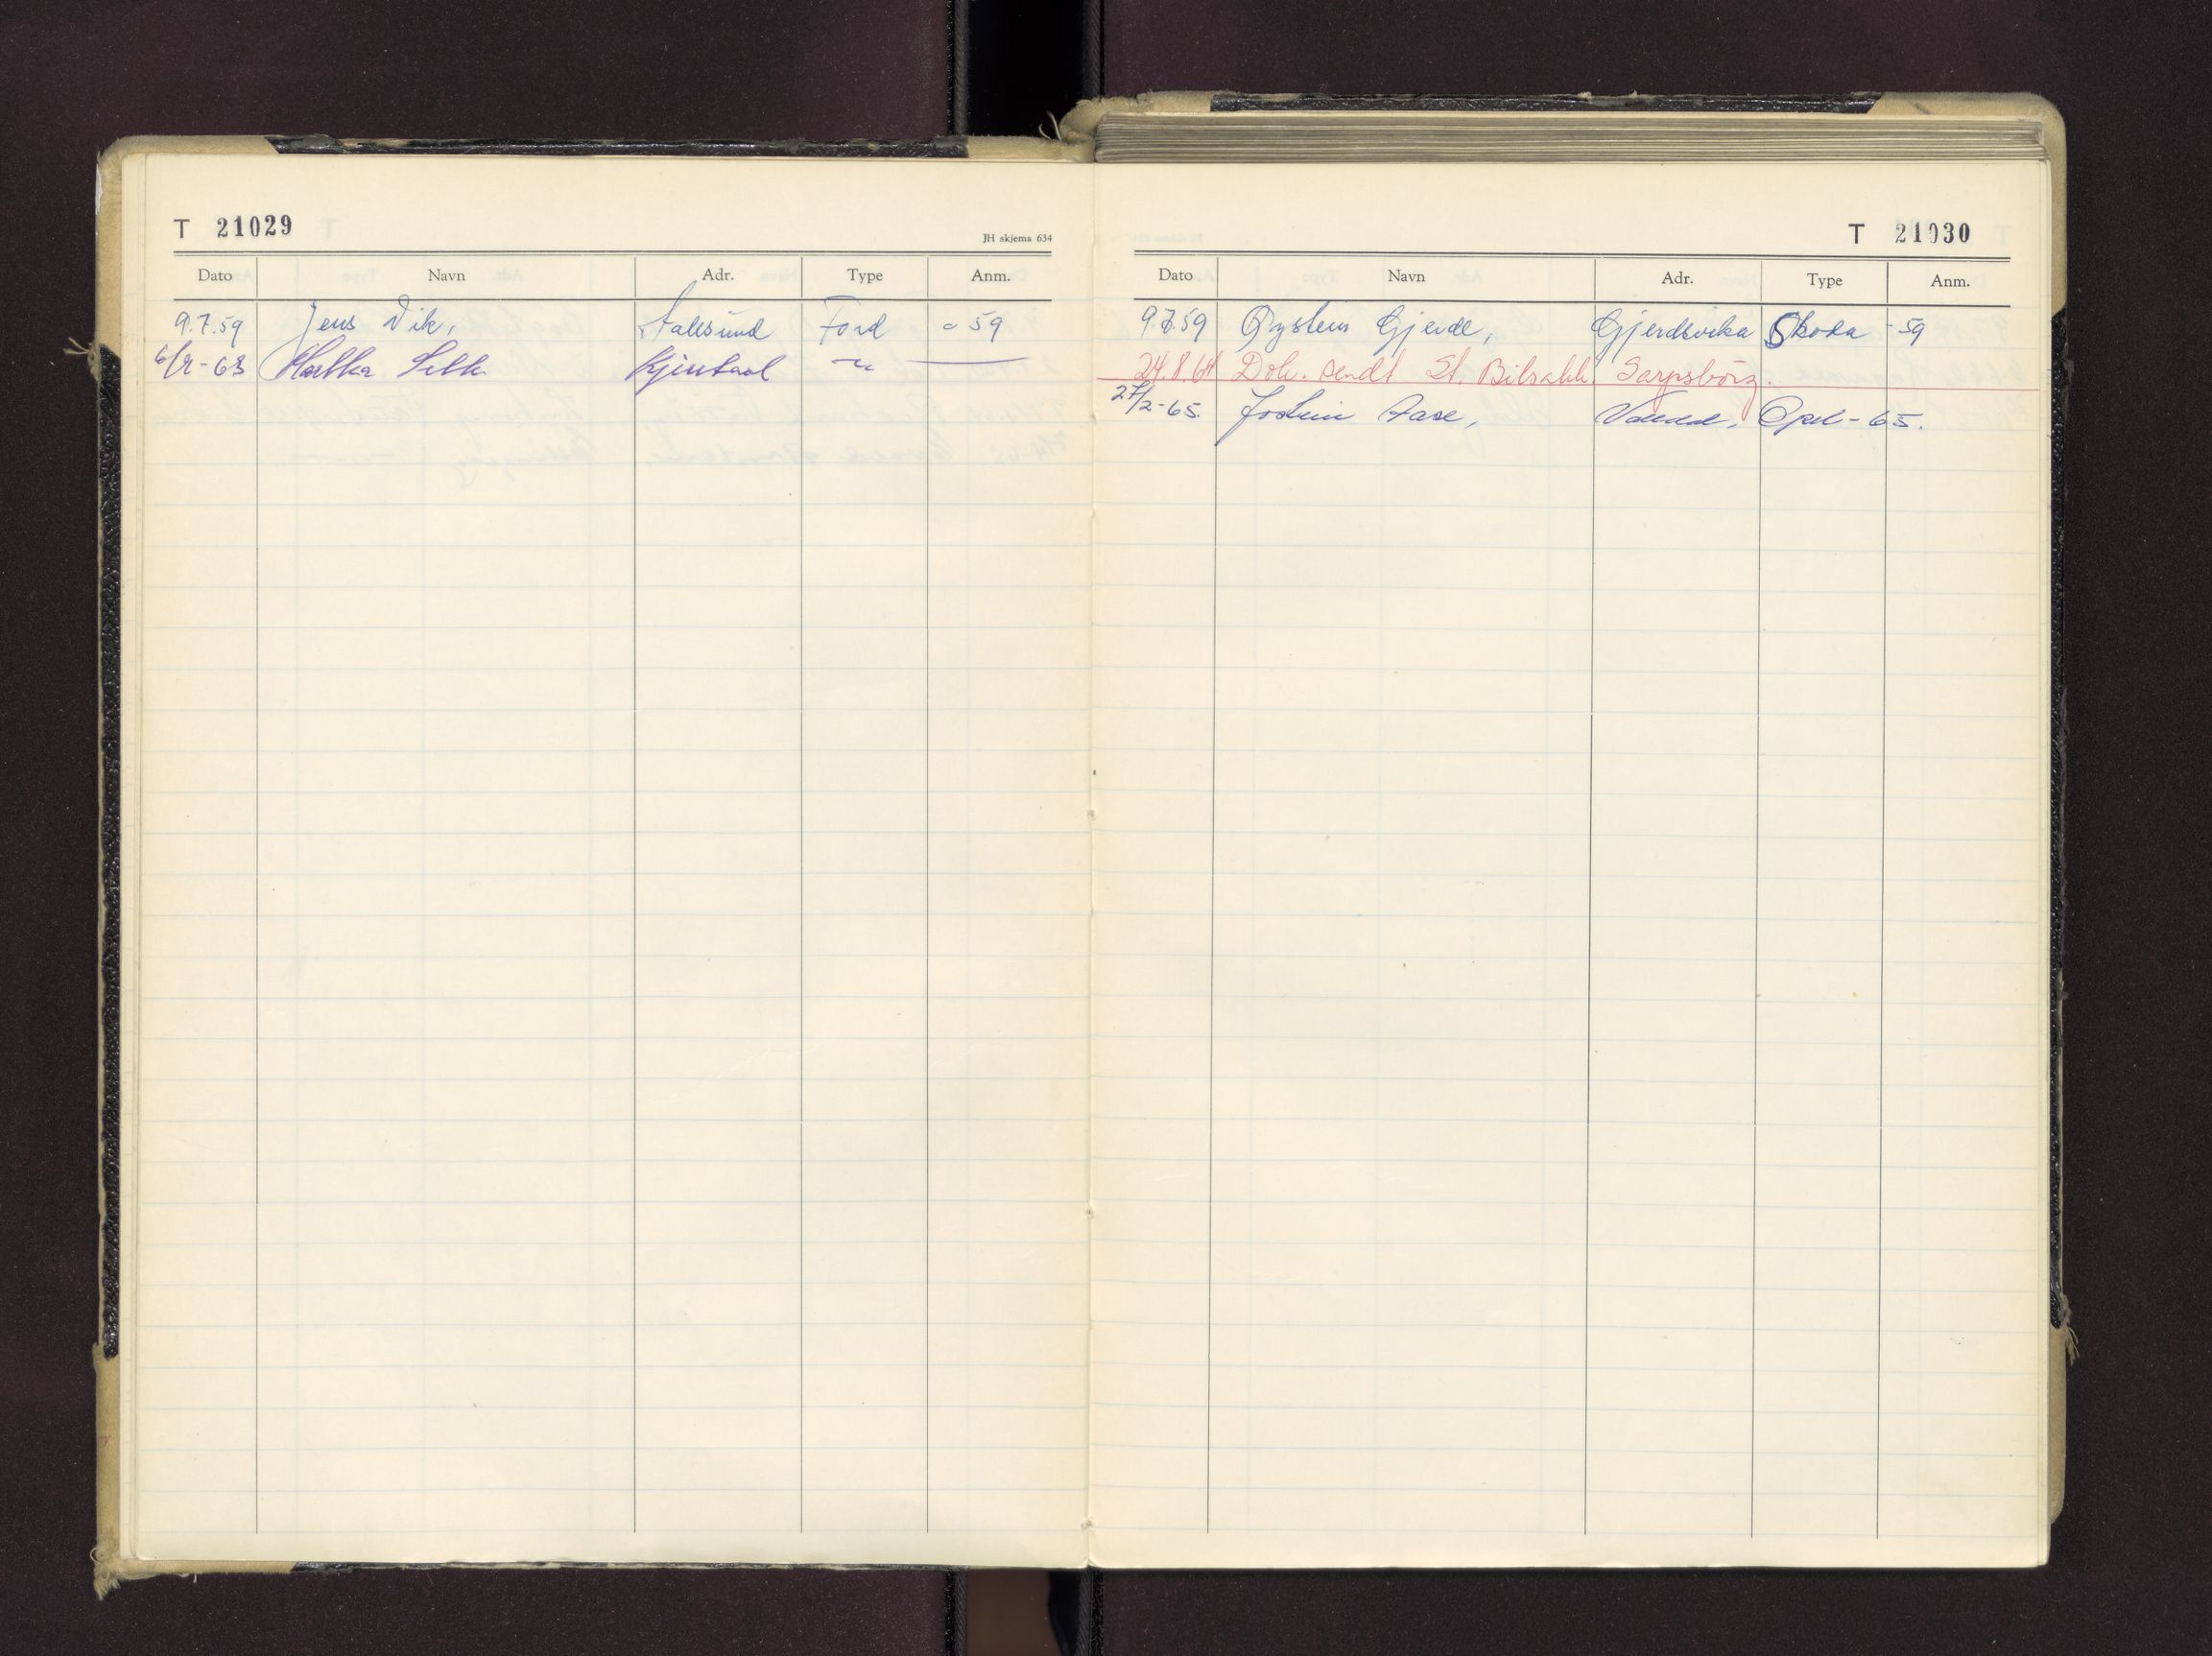 T 21029
JH skjema 634
Dato Navn Adr. Type Anm.
9.7.59 Jens Vik, Aalesund Ford - 59
6/2-63
T 21030
Dato Navn Adr. Type Anm.
9.7.59 Øystein Gjerde, Gjerdsvika Skoda - 59
24.8.64 Dok. sendt St. Bilsakk. Sarpsborg.
27/2-65 Jostein Aase, Opel - 65.